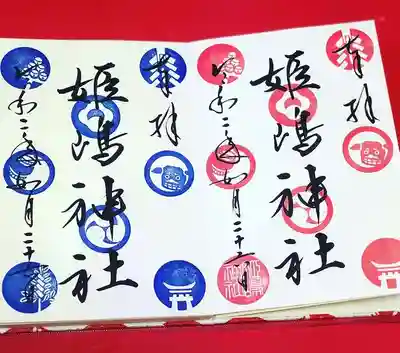 奉拝
姫嶋神社
令和二年如月二十
奉拝
姫嶋神社
令和二年如月二十